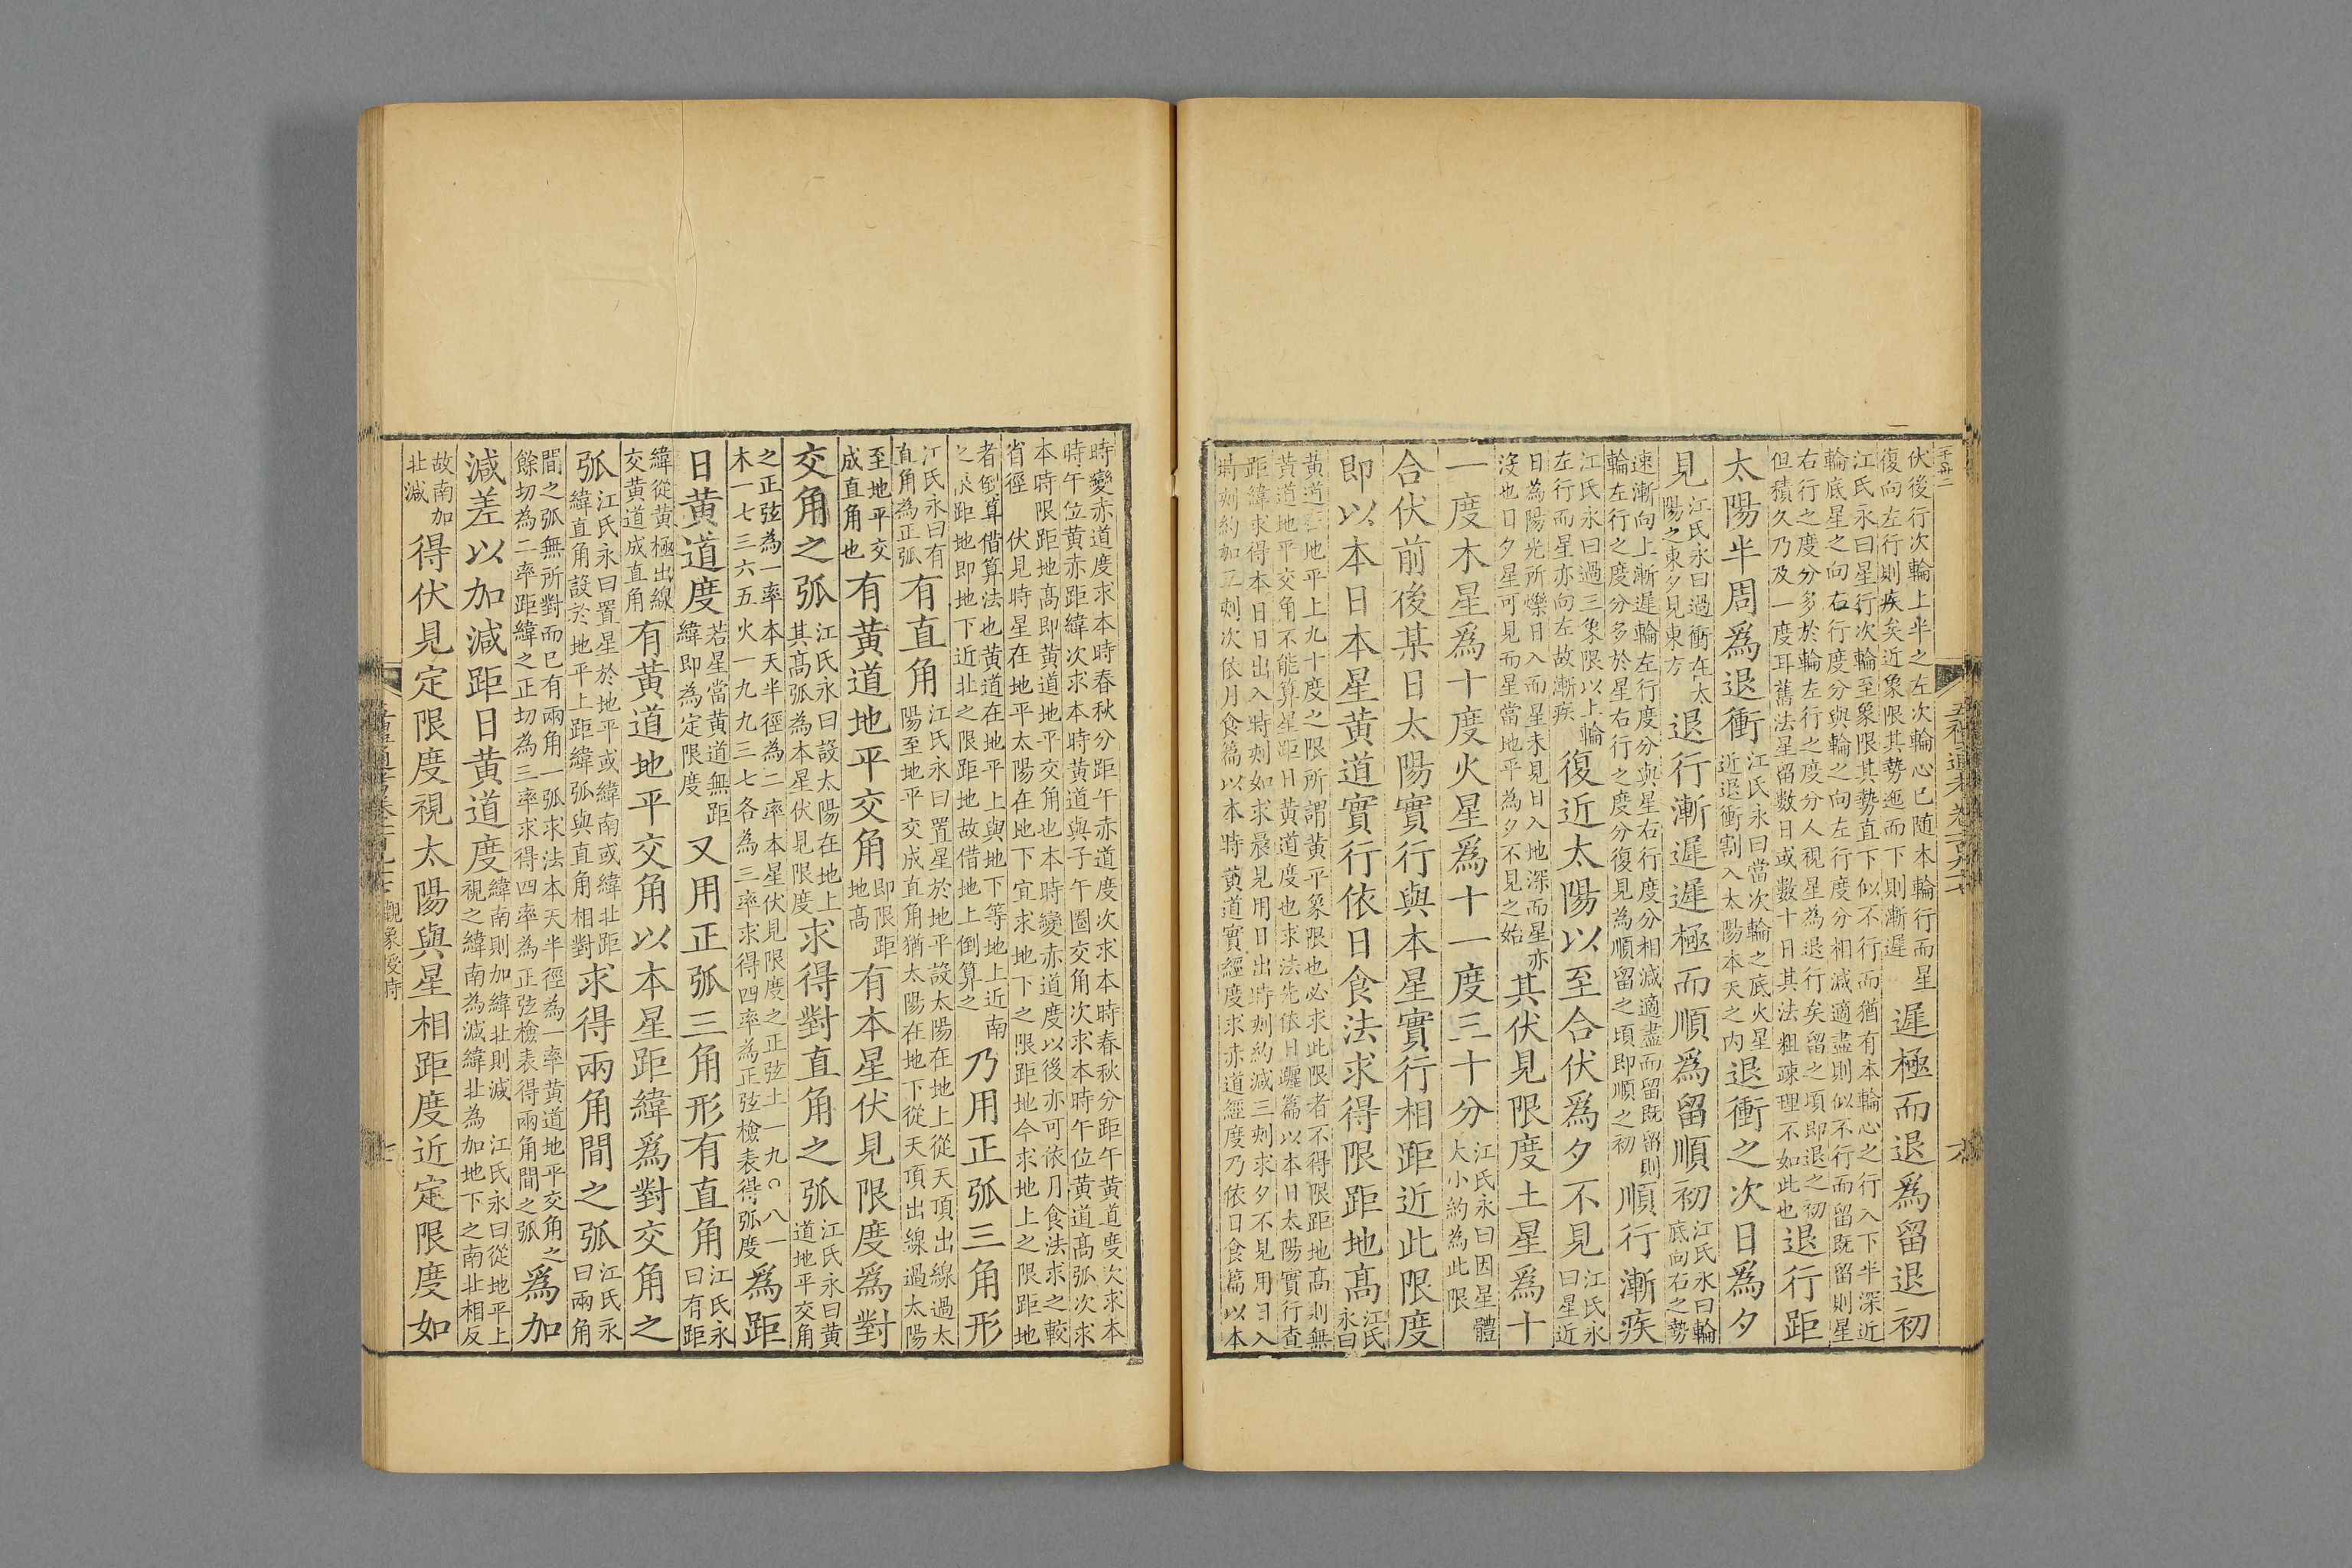 伏後行次輪上半之左次輪心已随本輪行而星
復向左行則疾矣近象限其勢迤而下則漸遲
遲極而退爲留退初
江氏永曰星行次輪至象限其勢直下似不行而猶有本輪心之行入下半深近
輪底星之向右行度分與輪之向左行度分相減適盡則似不行而留既留則星
右行之度分多於輪左行之度分人視星為退行矣留之頃即退之初
但積久乃及一度耳舊法星留數日或數十日其法粗疎理不如此也
退行距
太陽半周爲退衝
江氏永曰當次輪之底火星
近退衝割入太陽本天之内
退衝之次日爲夕
見
江氏永曰過衝在太
陽之東夕見東方
退行漸遲遲極而順爲留順初
江氏永曰輪
底向右之勢
速漸向上漸遲輪左行度分與星右行度分相減適盡而留既留則
輪左行之度分多於星右行之度分復見為順留之頃即順之初
順行漸疾
江氏永曰過三象限以上輪
左行而星亦向左故漸疾
復近太陽以至合伏爲夕不見
江氏永
曰星近
日為陽光所爍日入而星未見日入地深而星亦
沒也日夕星可見而星當地平為夕不見之始
其伏見限度土星爲十
一度木星爲十度火星爲十一度三十分
江氏永曰因星體
大小約為此限
合伏前後某日太陽實行與本星實行相距近此限度
即以本日本星黄道實行依日食法求得限距地高
江氏
永曰
黃道在地平上九十度之限所謂黃平象限也必求此限者不得限距地高則無
黃道地平交角不能算星距日黃道度也求法先依日躔篇以本日太陽實行查
距緯求得本日日出入時刻如求晨見用日出時刻約減三刻求夕不見用日入
時刻約加三刻次依月食篇以本時黄道實經度求赤道經度乃依日食篇以本
時變赤道度求本時春秋分距午赤道度次求本時春秋分距午黃道度次求本
時午位黄赤距緯次求本時黃道與子午圈交角次求本時午位黄道高弧次求
本時限距地高即黃道地平交角也本時變赤道度以後亦可依月食法求之較
省徑 伏見時星在地平太陽在地下宜求地下之限距地今求地上之限距地
者倒算借算法也黄道在地平上與地下等地上近南
之限距地即地下近北之限距地故借地上倒算之
乃用正弧三角形
江氏永曰有
直角為正弧
有直角
江氏永曰置星於地平設太陽在地上從天頂出線過太
陽至地平交成直角猶太陽在地下從天頂出線過太陽
至地平交
成直角也
有黄道地平交角
即限距
地高
有本星伏見限度爲對
交角之弧
江氏永曰設太陽在地上
其高弧為本星伏見限度
求得對直角之弧
江氏永曰黄
道地平交角
之正弦為一率本天半徑為二率本星伏見限度之正弦土一九〇八一
木一七三六五火一九九三七各為三率求得四率為正弦檢表得弧度
爲距
日黄道度
若星當黄道無距
緯即為定限度
又用正弧三角形有直角
江氏永
曰有距
緯從黄極出線
交黄道成直角
有黄道地平交角以本星距緯爲對交角之
弧
江氏永曰置星於地平或緯南或緯北距
緯直角設於地平上距緯弧與直角相對
求得兩角間之弧
江氏永
曰兩角
間之弧無所對而已有兩角一弧求法本天半徑為一率黄道地平交角之
餘切為二率距緯之正切為三率求得四率為正弦檢表得兩角間之弧
爲加
減差以加減距日黄道度
緯南則加緯北則減 江氏永曰從地平上
視之緯南為減緯北為加地下之南北相反
故南加
北減
得伏見定限度視太陽與星相距度近定限度如
觀象授時